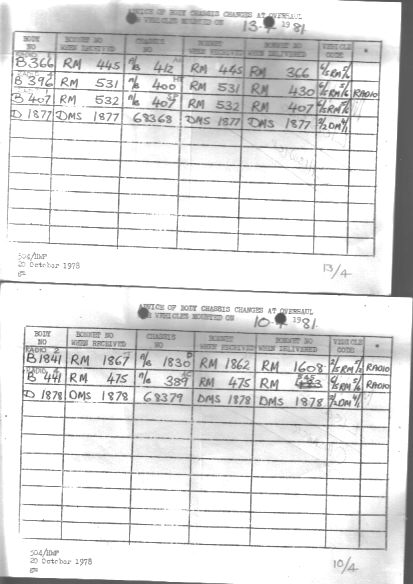 ADVICE OF BODY CHASSIS CHANGES AT OVERHAUL
VEHICLES MOUNTED ON 13-4 1981
BODY NO BONNET NO WHEN RECEIVED CHASSIS NO BONNET WHEN RECEIVED BONNET NO WHEN DELIVERED VEHICLE CODE *
B 366 RM 445 N/B 412 RM 445 RM 366 5/1
B 396 RM 531 N/B 400 RM 531 RM 430 RADIO
B 407 RM 532 N/B 407 RM 532 RM 407
D 1877 DMS 1877 68368 DMS 1877 DMS 1877
504/HWF
20 October 1978
13/4
ADVICE OF BODY CHASSIS CHANGES AT OVERHAUL
VEHICLES MOUNTED ON 10-4 1981
BODY NO BONNET NO WHEN RECEIVED CHASSIS NO BONNET WHEN RECEIVED BONNET NO WHEN DELIVERED VEHICLE CODE *
RADIO 2
B 1841 RM 1867 N/B 1830 RM 1862 RM 1608 RADIO
B 441 RM 475 N/B 389 RM 475 RM RADIO
D 1878 DMS 1878 68379 DMS 1878 DMS 1878
504/HWF
20 October 1978
10/4